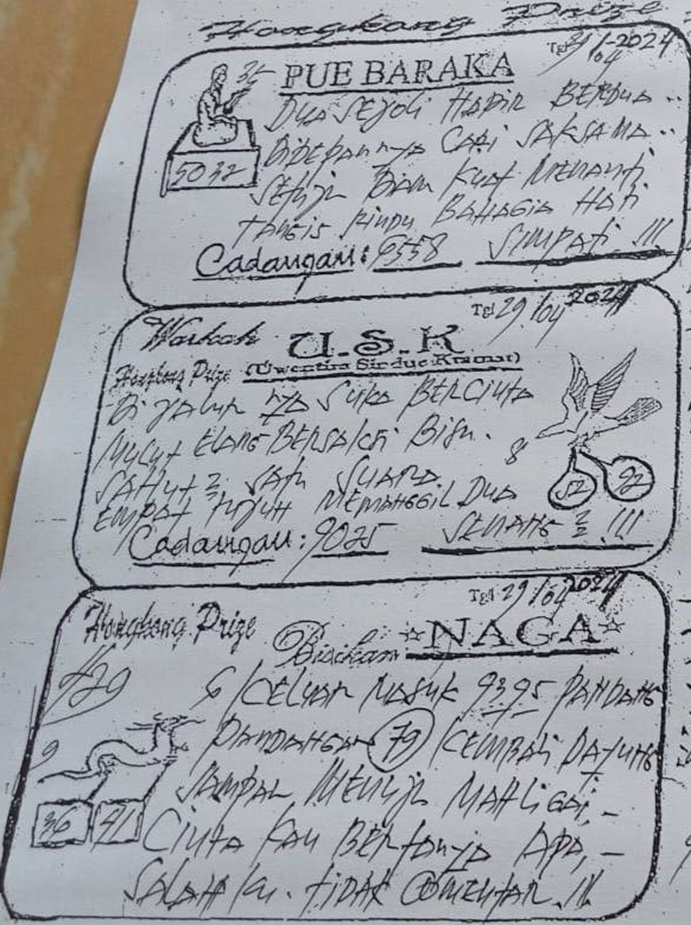 Hongkong Prize
Tgl 29/04-2024
PUE BARAKA
DUA SEJOLI HADIR BERDUA..
DIDEPANNYA CARI SAKSAMA..
5032
SETUJU DIAM KUAT MENANTI
TANGIS RINDU BAHAGIA HATI
Cadangan: 9558 SIMPATI !!!
Tgl 29/04 2024
U.S.K
Hongkong Prize
SUKA BERCINTA
MULUT ELANG BERSAKSI BISU.
8
SAHUT2 SATU SUARA
52 92
EMPAT TUJUH MEMANGGIL DUA
Cadangan: 9025 SENANG 2 !!!
Tgl 29/04 2024
Hongkong Prize
Bisikan ☆NAGA☆
6 KELUAR MASUK 9395 PANDANG
9
PANDANGAN 79 KEMBALI PAYUNG
SAMPAI MENUJU MAHLIGAI,-
36
CINTA KAU BERTANYA APA,-
SALAH KU. TIDAK COMENTAR !!!